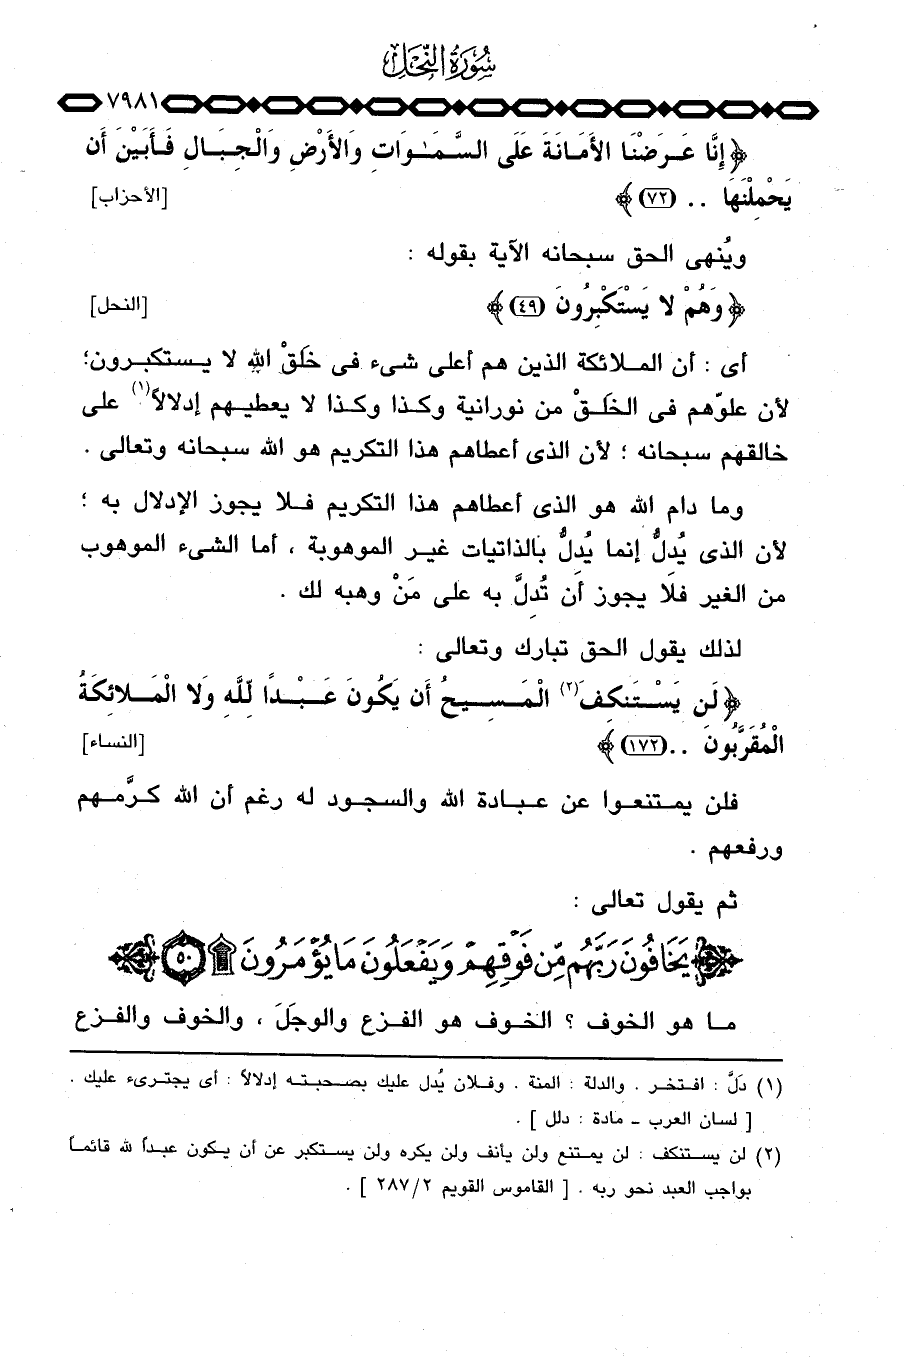 سُورَةُ النَّحْلِ
٧٩٨١
﴿ إِنَّا عَرَضْنَا الأَمَانَةَ عَلَى السَّمَـٰوَاتِ وَالأَرْضِ وَالْجِبَالِ فَأَبَيْنَ أَن
يَحْمِلْنَهَا .. (٧٢) ﴾ [الأحزاب]
ويُنهى الحق سبحانه الآية بقوله :
﴿ وَهُمْ لا يَسْتَكْبِرُونَ (٤٩) ﴾ [النحل]
أى : أن الملائكة الذين هم أعلى شىء فى خَلَقْ اللهِ لا يستكبرون؛
لأن علوّهم فى الخَلَقْ من نورانية وكذا وكذا لا يعطيهم إدلالاً(١) على
خالقهم سبحانه ؛ لأن الذى أعطاهم هذا التكريم هو الله سبحانه وتعالى .
وما دام الله هو الذى أعطاهم هذا التكريم فلا يجوز الإدلال به ؛
لأن الذى يُدِلُّ إنما يُدِلُّ بالذاتيات غير الموهوبة ، أما الشىء الموهوب
من الغير فلا يجوز أن تُدِلَّ به على مَنْ وهبه لك .
لذلك يقول الحق تبارك وتعالى :
﴿ لَن يَسْتَنكِفَ(٢) الْمَسِيحُ أَن يَكُونَ عَبْدًا لِّلَّهِ وَلا الْمَلائِكَةُ
الْمُقَرَّبُونَ .. (١٧٢) ﴾ [النساء]
فلن يمتنعوا عن عبادة الله والسجود له رغم أن الله كرَّمهم
ورفعهم .
ثم يقول تعالى :
﴿ يَخَافُونَ رَبَّهُم مِّن فَوْقِهِمْ وَيَفْعَلُونَ مَا يُؤْمَرُونَ ۩ ٥٠ ﴾
ما هو الخوف ؟ الخوف هو الفزع والوجَلَ ، والخوف والفزع
(١) دَلَّ : افتخر . والدلة : المنة . وفلان يُدل عليك بصحبته إدلالاً : أى يجترىء عليك .
[ لسان العرب ـ مادة : دلل ] .
(٢) لن يستنكف : لن يمتنع ولن يأنف ولن يكره ولن يستكبر عن أن يكون عبداً لله قائماً
بواجب العبد نحو ربه . [ القاموس القويم ٢/ ٢٨٧ ] .